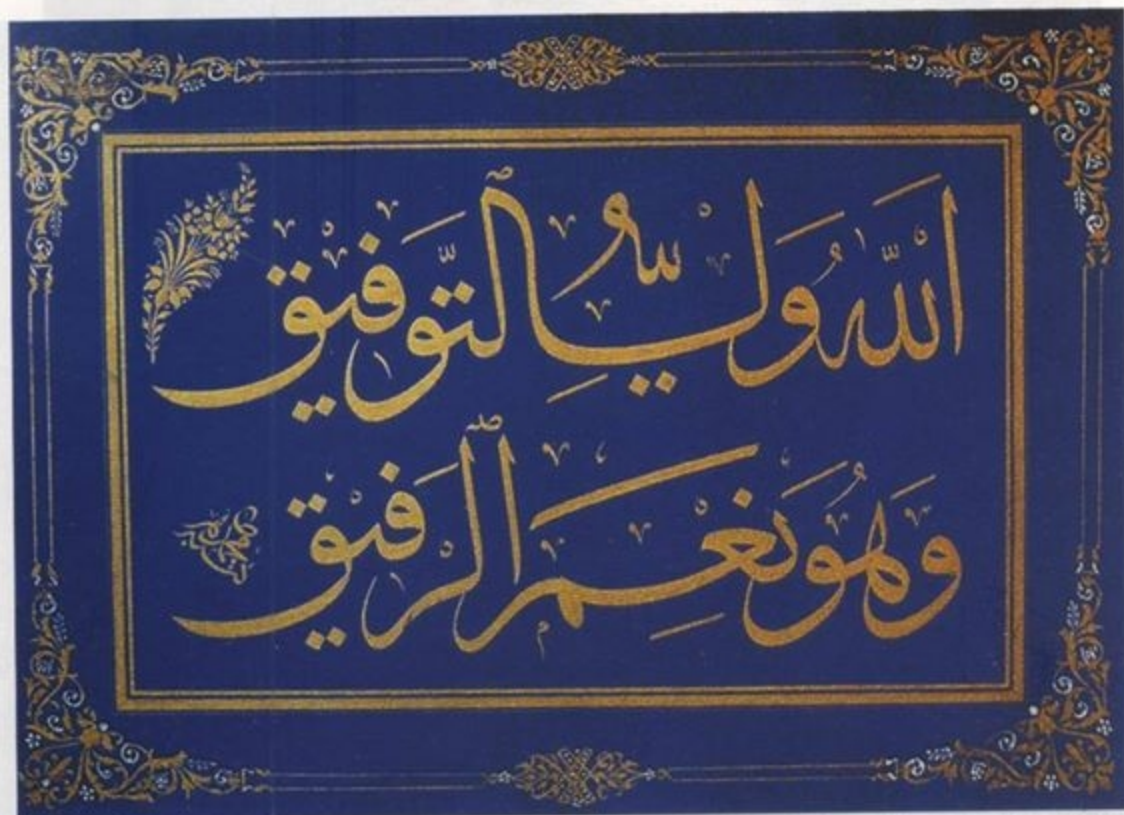 اَللّٰهُ وَلِيُّ التَّوْفِيقِ
وَهُوَ نِعْمَ الرَّفِيقِ